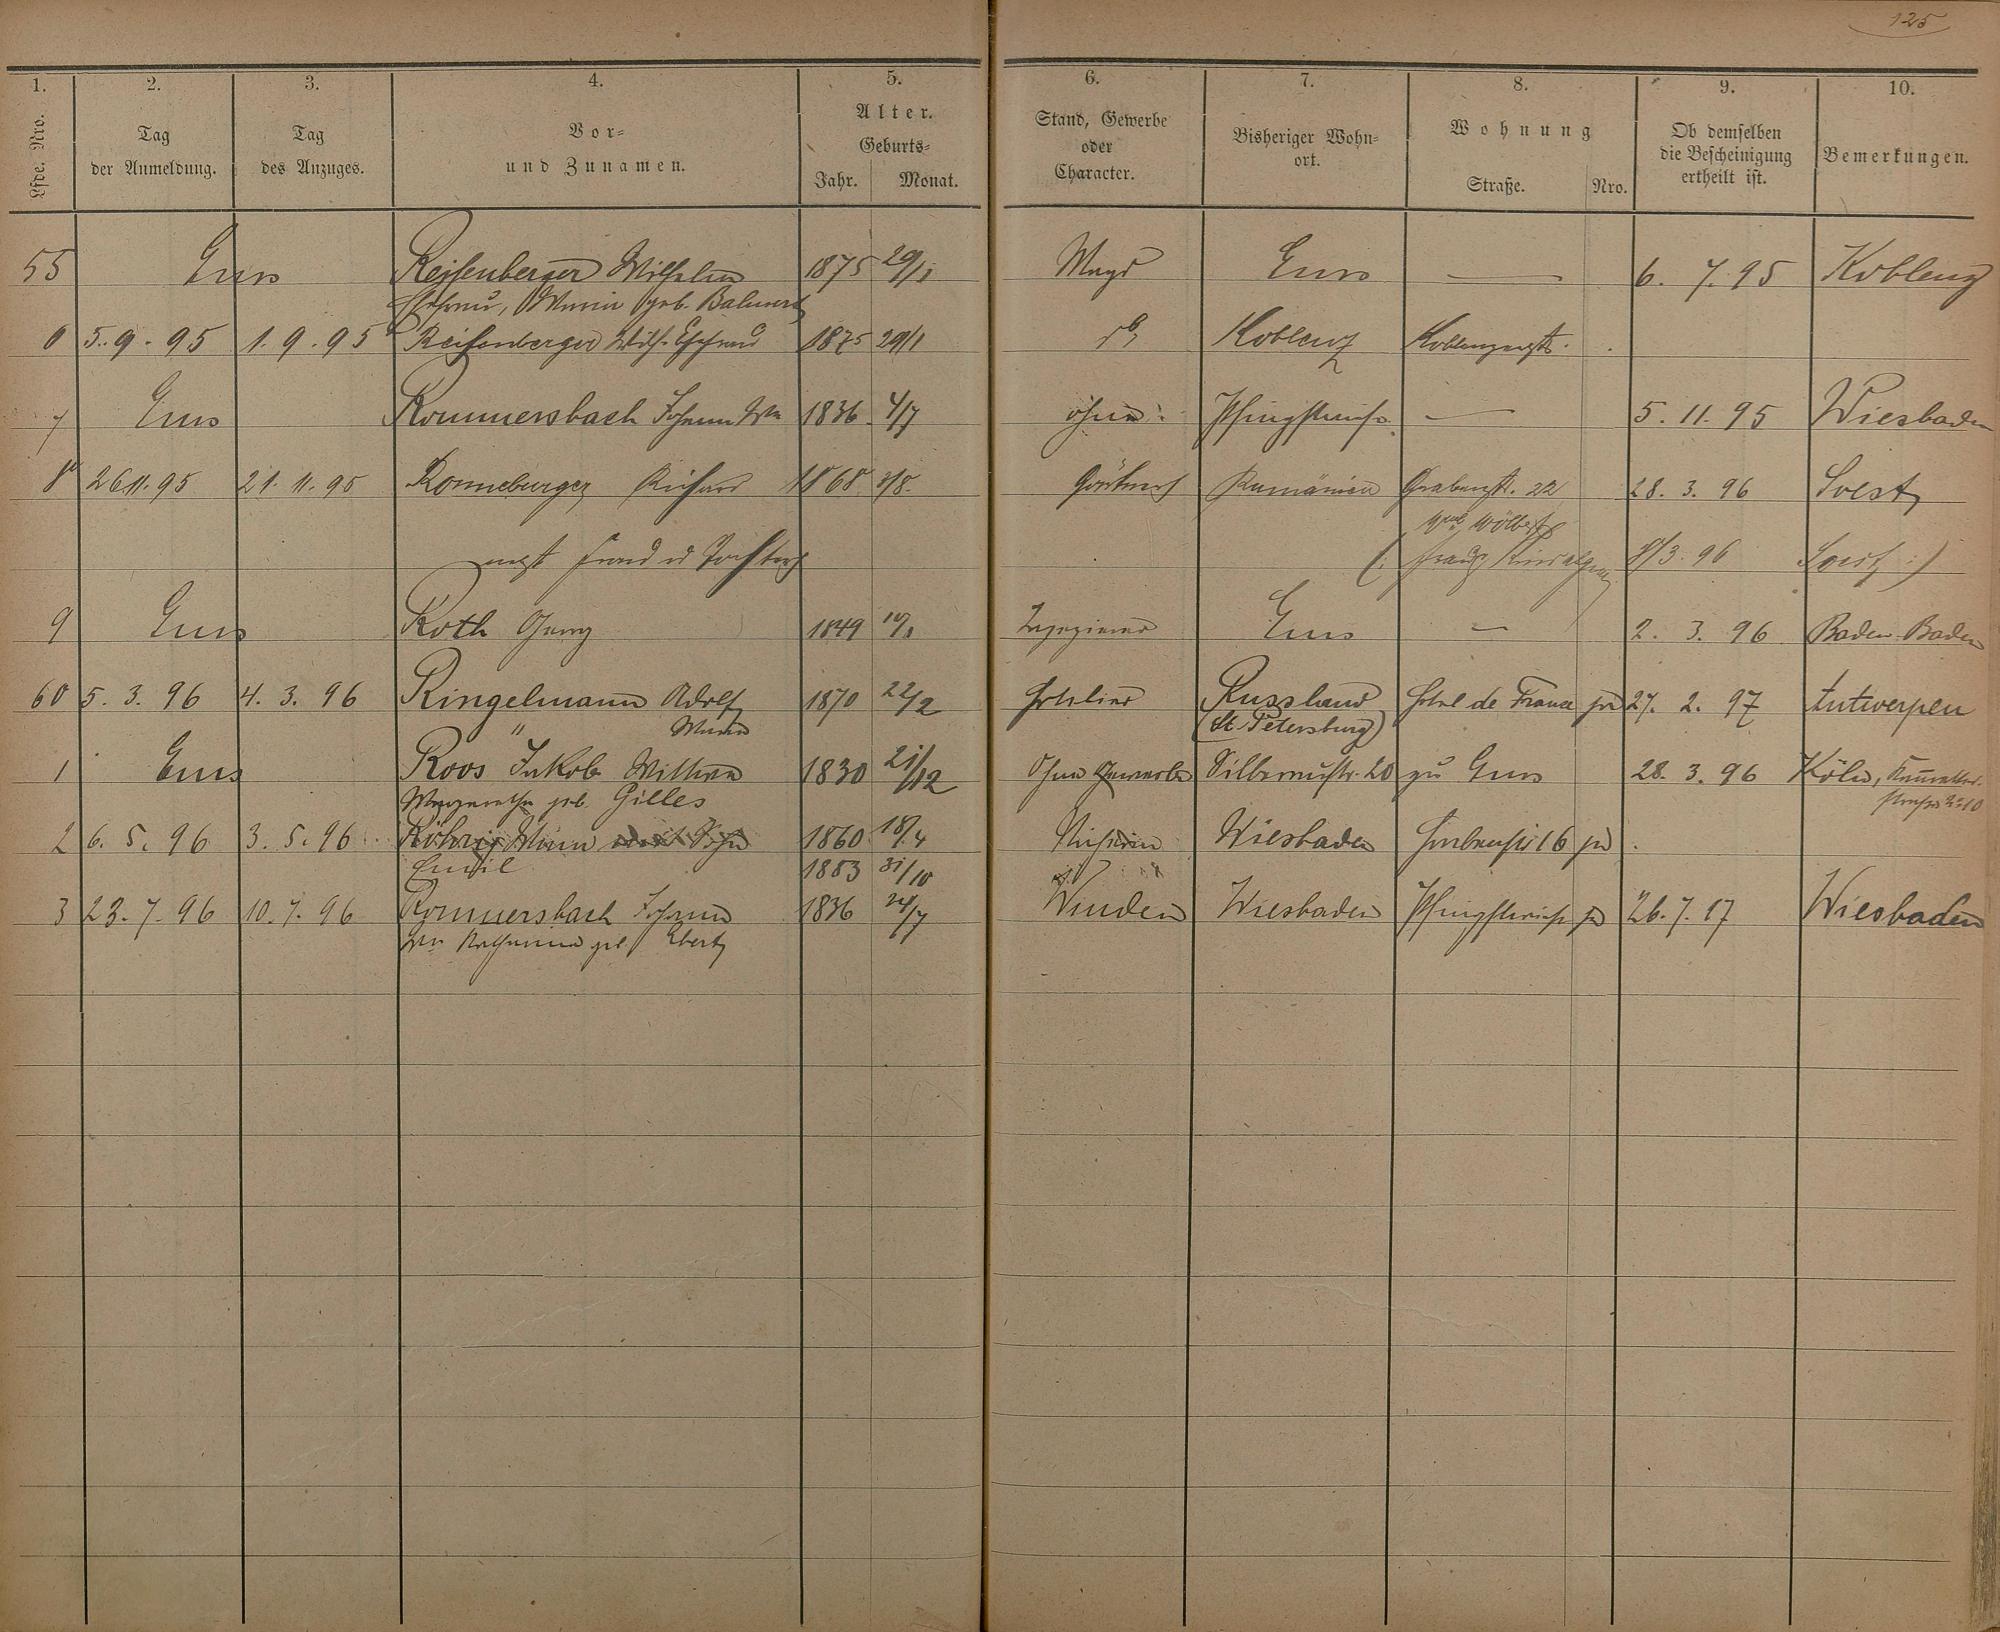 125
1. 2. 3. 4. 5. 6. 7. 8. 9. 10.
Lfde. Nro. Tag der Anmeldung. Tag des Anzuges. Vor- und Zunamen. Alter. Geburts- Jahr. Monat. Stand, Gewerbe oder Character. Bisheriger Wohnort. Wohnung Straße. Nro. Ob demselben die Bescheinigung ertheilt ist. Bemerkungen.
55 Ems Reifenberger Wilhelm 1875 29/1 Magd Ems — 6. 7. 95 Koblenz
Ehefrau, Maria geb.
6 5. 9. 95 1. 9. 95 Reifenberger Wilh. Ehefrau 1875 29/1 Koblenz Koblenzerstr.
7 Ems Rommersbach Johann Ww 1836 4/7 ohne Pfingstwiese — 5. 11. 95 Wiesbaden
8 26.11.95 21. 11. 95 Ronneburger Richard 1868 3/8 Gärtner Rumänien Grabenstr. 22 28. 3. 96 Soest
nebst Frau u Tochter (: 8/3. 96 Soest :)
9 Ems Roth Georg 1849 Ingenieur Ems — 2. 3. 96 Baden-Baden
60 5. 3. 96 4. 3. 96 Ringelmann Adolf 1870 22/2 Hotelier Russland Hotel de France 27. 2. 97 Antwerpen
" (St. Petersburg)
1 Ems Roos Jakob Wittwe 1830 21/12 Ohne Gewerbe Silberaustr. 20 zu Ems 28. 3. 96 Köln,
Margarethe geb. Gilles
2 6. 5. 96 3. 5. 96 Röhrig 1860 18/4 Wiesbaden 16
Emil 1883 31/10
3 23. 7. 96 10. 7. 96 Rommersbach Johann 1836 24/7 Winden Wiesbaden Pfingstwiese 26. 7. 17 Wiesbaden
Ww Katharina geb. Ebertz